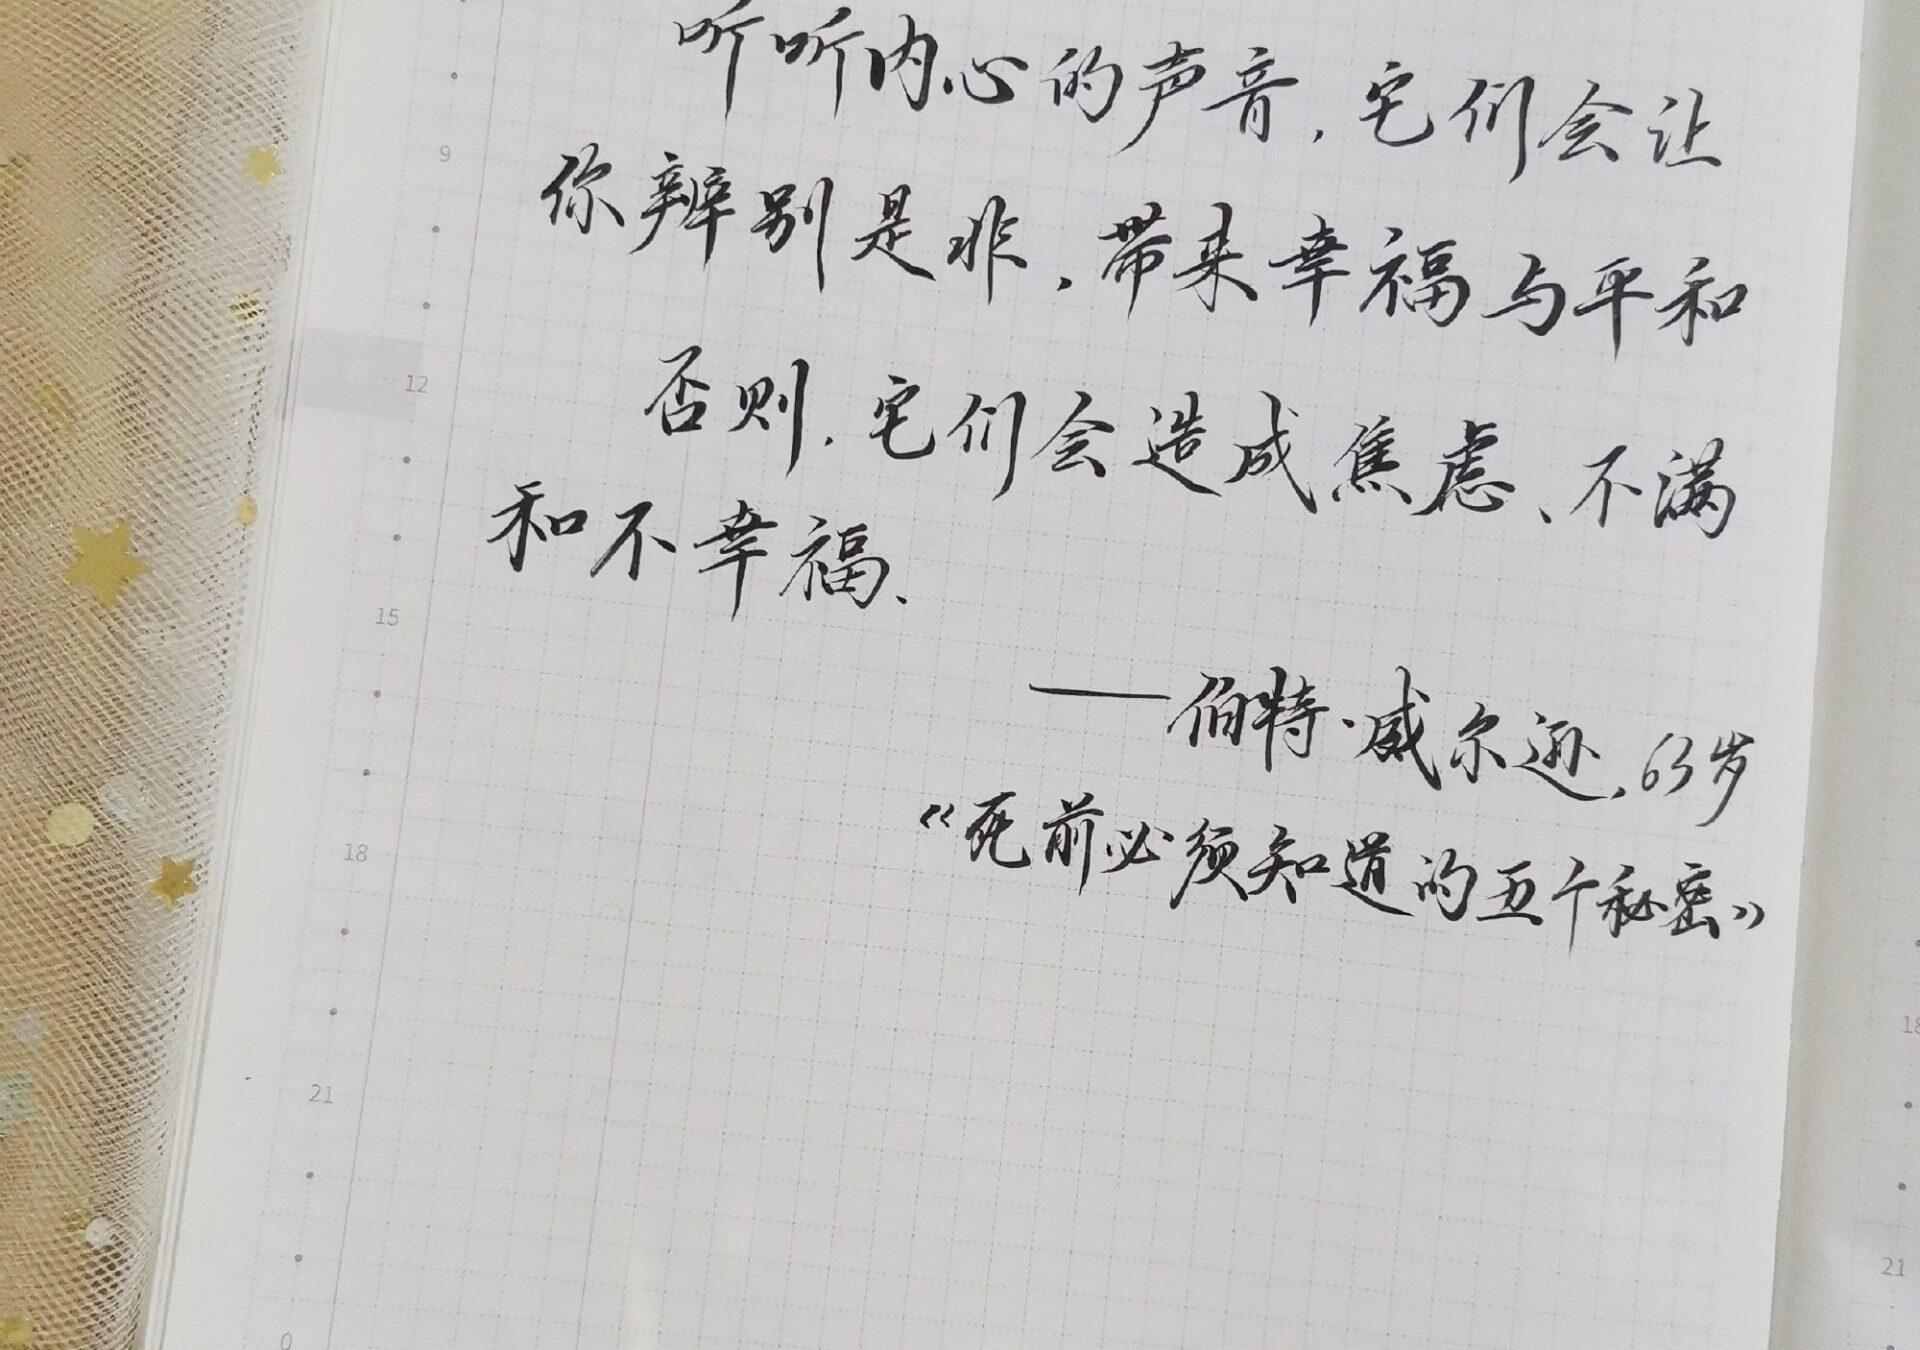 听听内心的声音，它们会让
你辨别是非，带来幸福与平和
否则，它们会造成焦虑、不满
和不幸福.
——伯特·威尔逊，63岁
《死前必须知道的五个秘密》
9
12
15
18
21
0
18
21